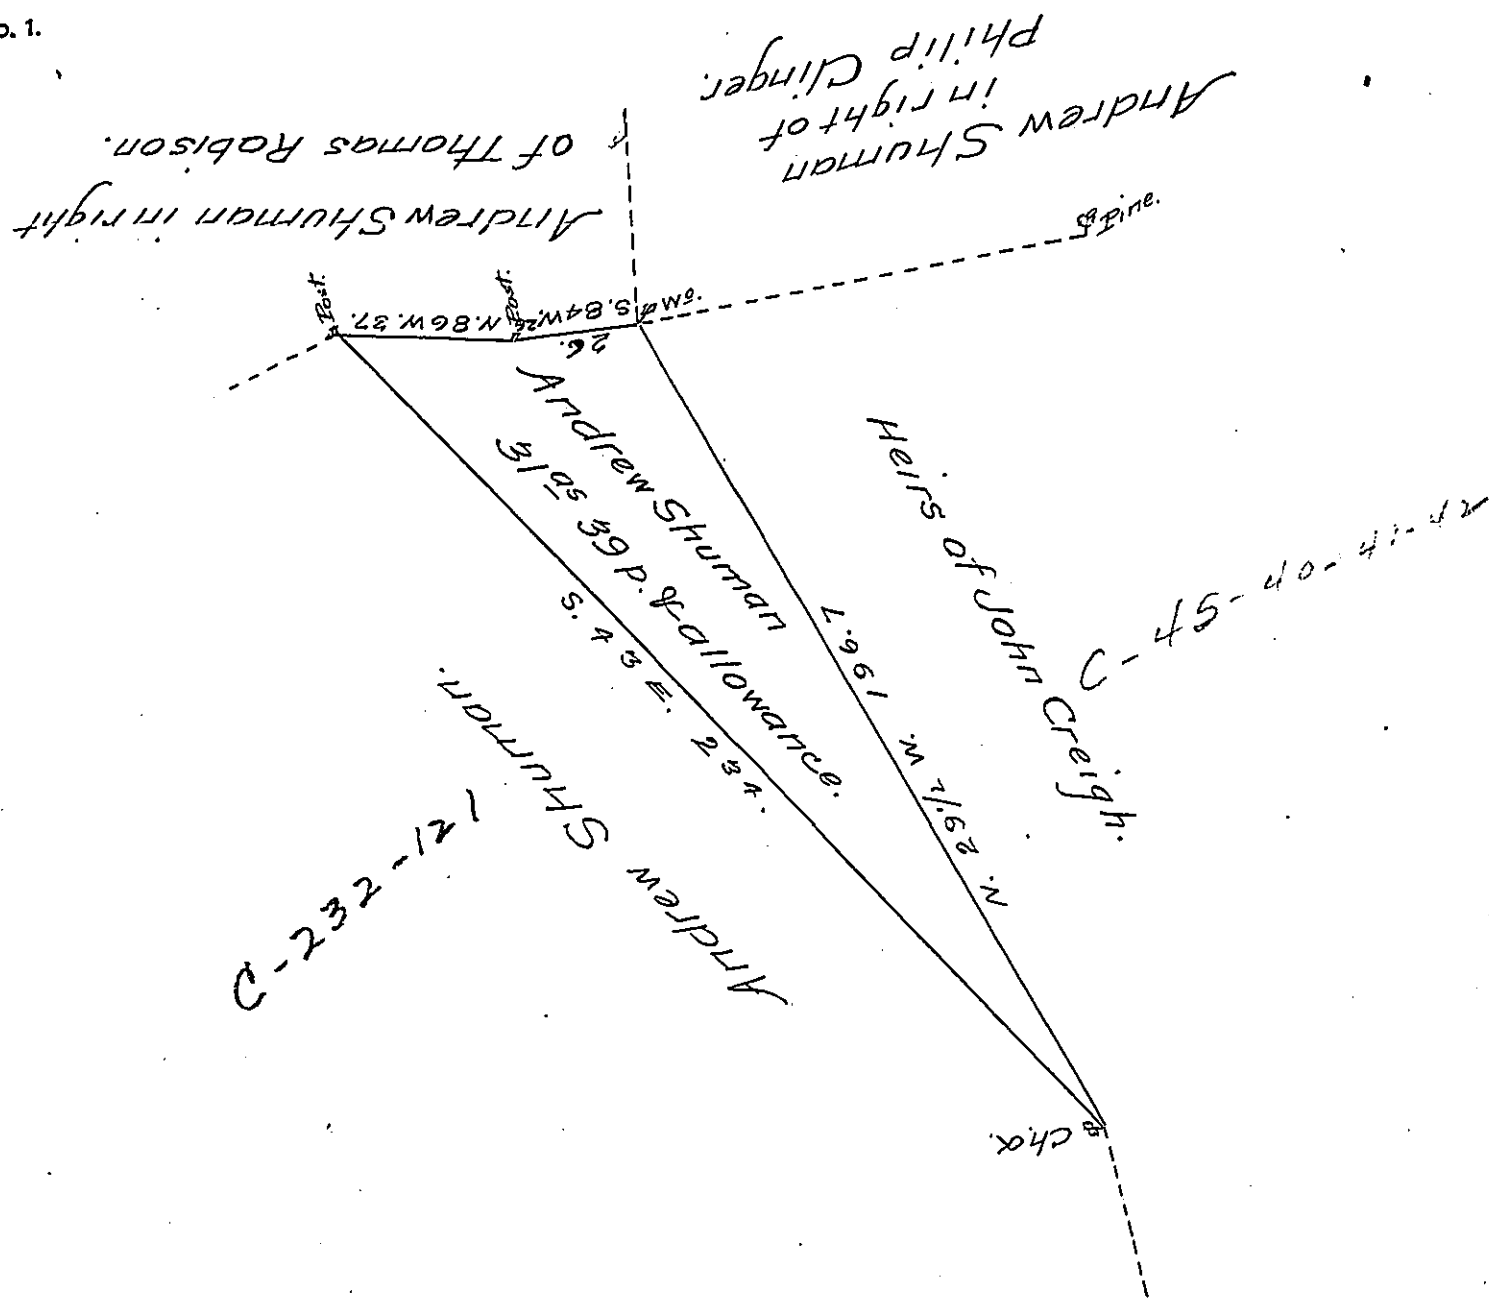 o. 1.
Andrew Shuman
in right of
Philip Clinger.
Andrew Shuman in right
of Thomas Robison.
Pine.
Post.
N. 86 W. 37.
Post.
S. 84 W. 26
26.
W.O.
Andrew Shuman
31as 39 p. & allowance.
S. 43 E. 234.
N. 29½ W. 196.7
Heirs of John Creigh.
C-45-40-41-42
Andrew Shuman.
C-232-121
Cha.